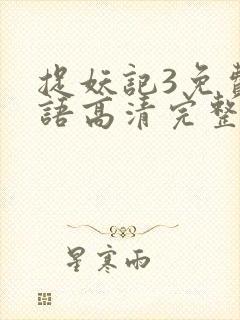 捉妖記3免費
語高清完整
星寒雨